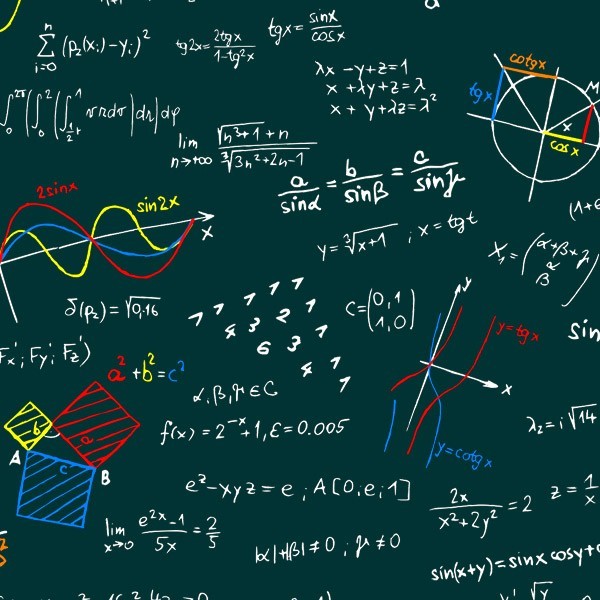 n
∑ (p₂(xᵢ)−yᵢ)²
i=0
tg2x = 2tgx / 1−tg²x
tgx = sinx / cosx
λx −y+z=1
x +λy+z=λ
x + y+λz=λ²
cotgx
tgx
M
x
cosx
lim n→+∞ √n³+1 + n / ∛3n²+2n−1
a/sinα = b/sinβ = c/sinγ
2sinx
sin2x
x
y=∛x+1 ; x=tgt
(1+
X₁ = (α+β+γ
α
β)
δ(p₂)=√0,16
1 1 1 1 1
4 3 2 1
6 3 1
4 1
1
C=(0,1
1,0)
y
y=tgx
x
y=cotgx
sin
Fx'; Fy'; Fz')
a²+b²=c²
b
a
c
A
B
α,β,γ∈C
f(x)=2⁻ˣ+1, ε=0.005
λ₂=i√14
eᶻ−xyz=e ; A[0;e;1]
2x / x²+2y² = 2
z = 1/x
lim x→0 e²ˣ−1 / 5x = 2/5
|α|+|β|≠0 ; γ≠0
sin(x+y)=sinx cosy+